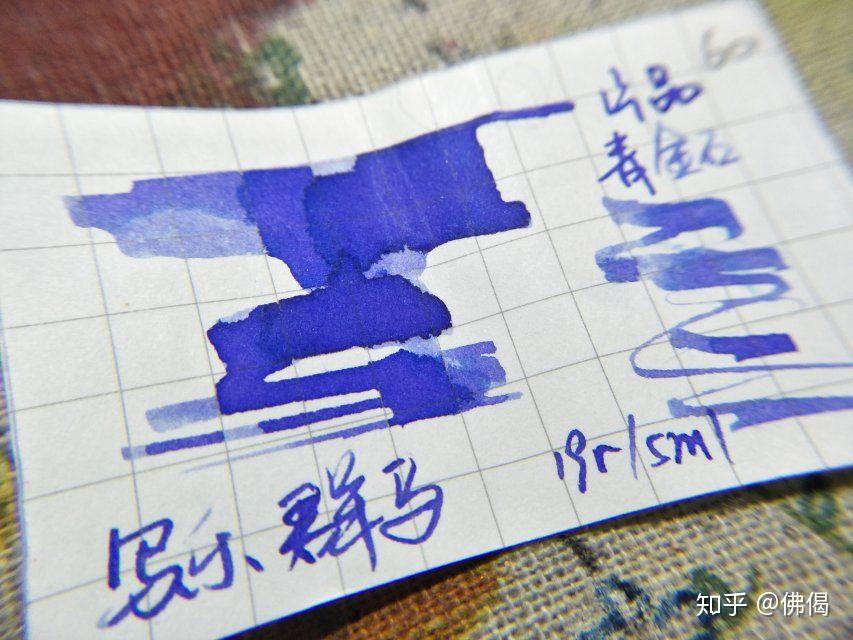 片品 60
青金石
19r/5ml
写乐 群马
知乎 @佛偈